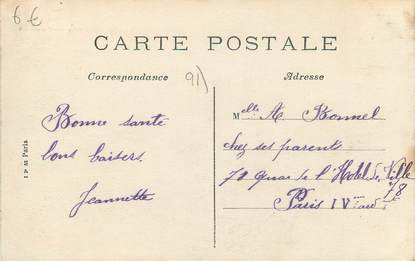 6 €
CARTE POSTALE
Correspondance
91)
Adresse
Bonne santé
bons baisers.
Jeannette
Mlle A Bonnel
chez ses parents
quai de l'Hotel de Ville
Paris IVme ard